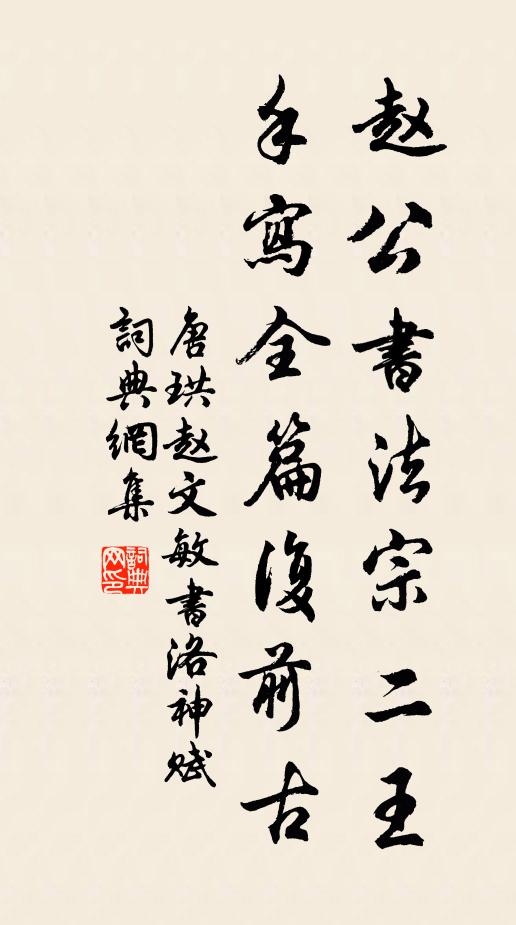 赵公書法宗二王
手寫全篇復前古
唐珙赵文敏書洛神赋
詞典網集
詞典網印